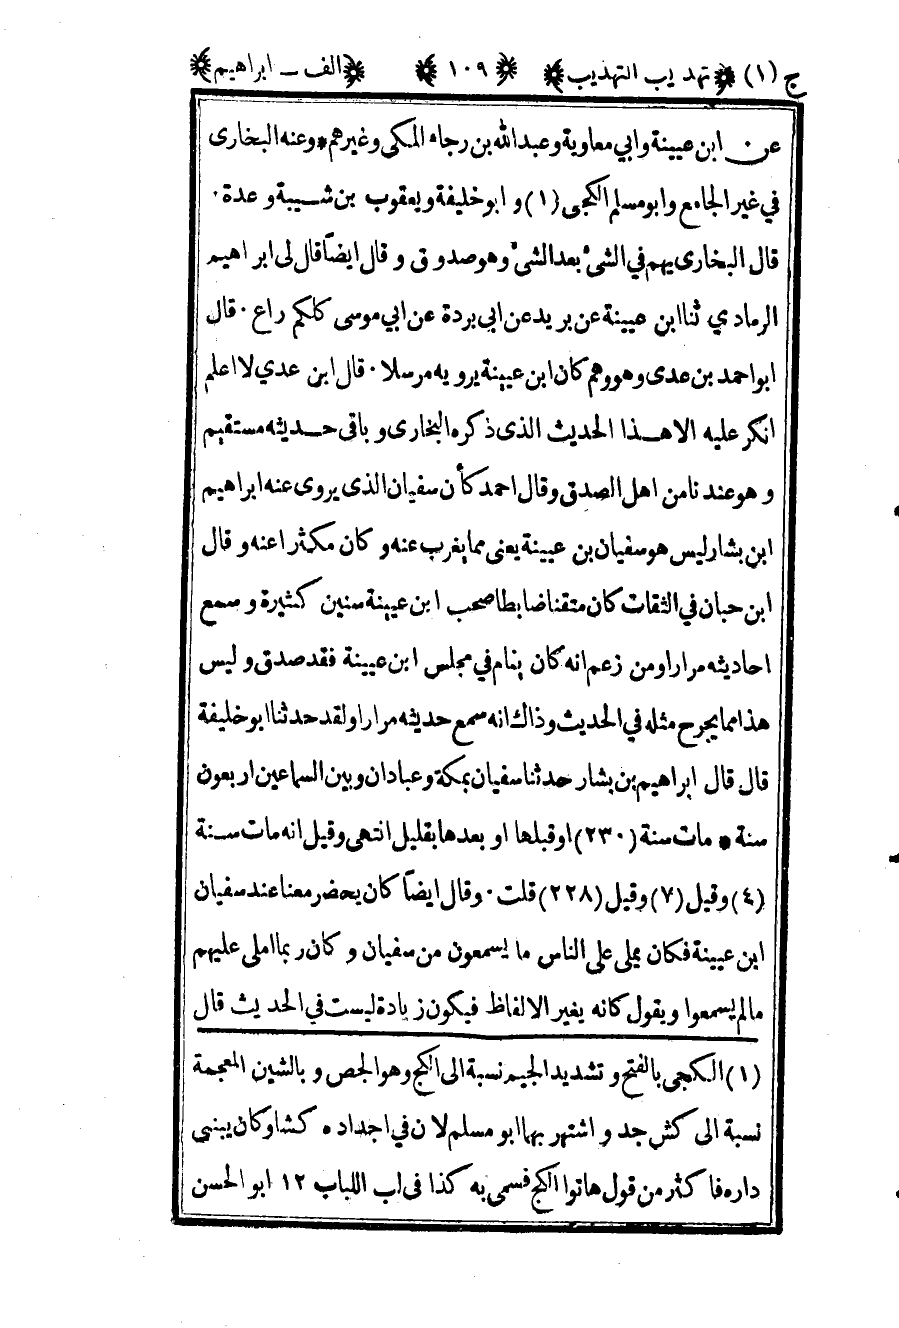 ج (١) ﴿تهذيب التهذيب﴾ ﴿١٠٩﴾ ﴿الف ــ ابراهيم﴾
عن · ابن عيينة وابي معاوية وعبدالله بن رجاء المكى وغيرهم * وعنه البخارى
في غير الجامع وابو مسلم الكجى (١) و ابو خليفة ويعقوب بن شــيبة وعدة ·
قال البخارى يهم في الشئ بعد الشئ وهو صدوق و قال ايضاً قال لى ابراهيم
الرمادي ثنا ابن عيينة عن بريد عن ابى بردة عن ابي موسى كلكم راع · قال
ابو احمد بن عدى وهو وهم كان ابن عيينة يرويه مرسلا · قال ابن عدي لا اعلم
انكر عليه الا هــذا الحديث الذى ذكره البخارى و باقى حــديثه مستقيم
و هو عندنا من اهل الصدق وقال احمد كأن سفيان الذى يروى عنه ابراهيم
ابن بشار ليس هو سفيان بن عيينة يعنى مما يغرب عنه و كان مكثرا عنه و قال
ابن حبان في الثقات كان متقنا ضابطا صحب ابن عيينة سنين كثيرة و سمع
احاديثه مرارا ومن زعم انه كان ينام في مجلس ابن عيينة فقد صدق و ليس
هذا مما يجرح مثله في الحديث وذاك انه سمع حديثه مرارا ولقد حدثنا ابو خليفة
قال قال ابراهيم بن بشار حدثنا سفيان بمكة وعبادان وبين السماعين اربعون
سنة * مات سنة (٢٣٠) او قبلها او بعدها بقليل انتهى وقيل انه مات ســنة
(٤) وقيل (٧) وقيل (٢٢٨) قلت · وقال ايضاً كان يحضر معنا عند سفيان
ابن عيينة فكان يملى على الناس ما يسمعون من سفيان و كان ربما املى عليهم
مالم يسمعوا ويقول كانه يغير الالفاظ فيكون زيادة ليست في الحديث قال
(١) الكجى بالفتح و تشديد الجيم نسبة الى الكج وهو الجص و بالشين المعجمة
نسبة الى كش جد و اشتهر بها ابو مسلم لان في اجداده كشا وكان يبنى
داره فاكثر من قول هاتوا الكج فسمى به كذا فى اب اللباب ١٢ ابو الحسن